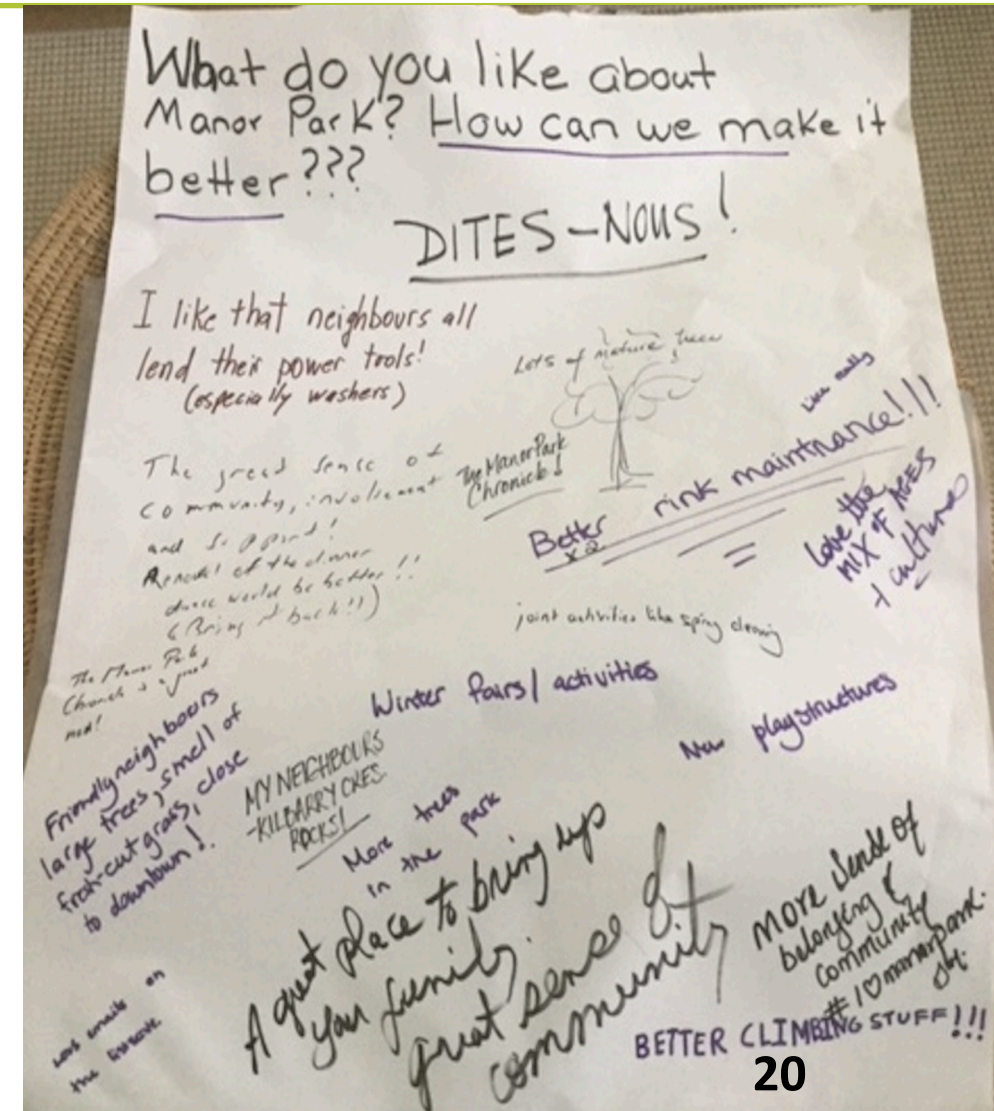 What do you like about
Manor Park? How can we make it
better???
DITES-NOUS!
I like that neighbours all
lend their power tools!
(especially washers)
Lots of mature trees!
The great sense of
community, involvement
and support!
of the dinner
dance would be better!!
(Bring it back!!)
The Manor Park
Chronicle!
Like really
Better rink maintnance!!!!
x2
Love the
MIX OF AGES
+ cultures
joint activities like spring cleaning
The Manor Park
Chronicle is a great
read!
Winter fairs/activities
New playstructures
Friendly neighbours
large trees, smell of
fresh-cut grass, close
to downtown!
MY NEIGHBOURS
-KILBARRY CRES.
ROCKS!
More trees
in the park
A great place to bring up
your family.
great sense of
community
more sense of
belonging &
community
#I♡manorpark.
emails on
the listserve
BETTER CLIMBING STUFF!!!
20